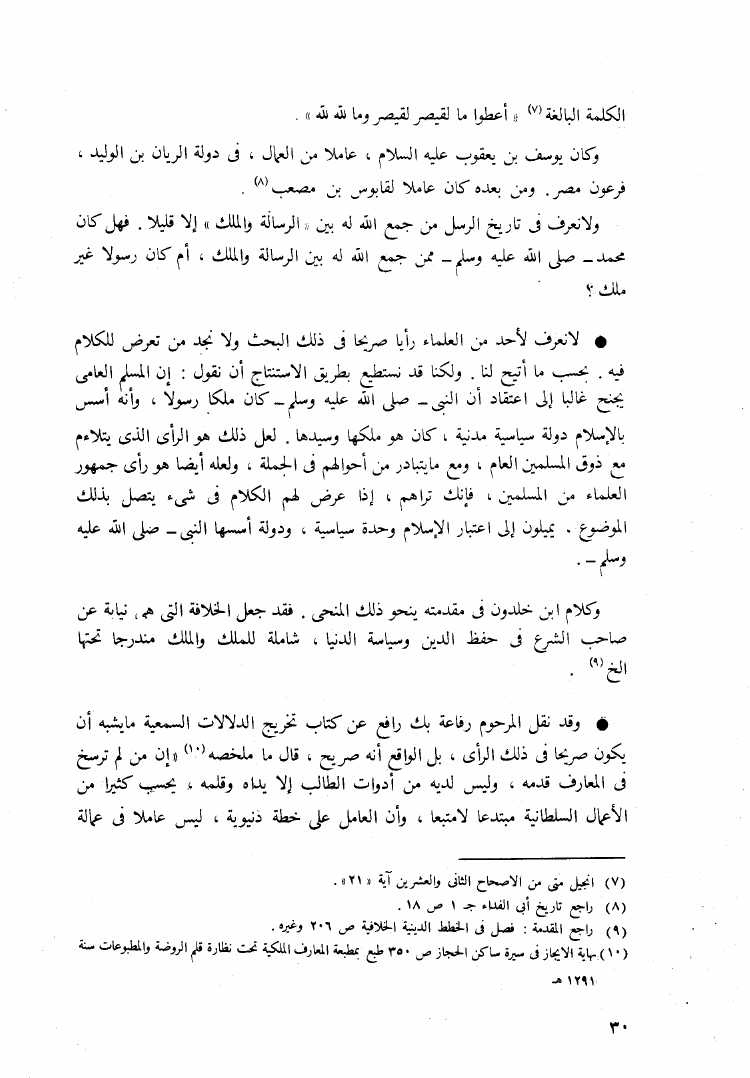 الكلمة البالغة (٧) « أعطوا ما لقيصر لقيصر وما لله لله » .
وكان يوسف بن يعقوب عليه السلام ، عاملا من العمال ، فى دولة الريان بن الوليد ،
فرعون مصر . ومن بعده كان عاملا لقابوس بن مصعب (٨) .
ولانعرف فى تاريخ الرسل من جمع الله له بين « الرسالة والملك » إلا قليلا . فهل كان
محمد ــ صلى الله عليه وسلم ــ ممن جمع الله له بين الرسالة والملك ، أم كان رسولا غير
ملك ؟
● لانعرف لأحد من العلماء رأيا صريحا فى ذلك البحث ولا نجد من تعرض للكلام
فيه . بحسب ما أتيح لنا . ولكنا قد نستطيع بطريق الاستنتاج أن نقول : إن المسلم العامى
يجنح غالبا إلى اعتقاد أن النبى ــ صلى الله عليه وسلم ــ كان ملكا رسولا ، وأنه أسس
بالإسلام دولة سياسية مدنية ، كان هو ملكها وسيدها . لعل ذلك هو الرأى الذى يتلاءم
مع ذوق المسلمين العام ، ومع مايتبادر من أحوالهم فى الجملة ، ولعله أيضا هو رأى جمهور
العلماء من المسلمين ، فإنك تراهم ، إذا عرض لهم الكلام فى شىء يتصل بذلك
الموضوع . يميلون إلى اعتبار الإسلام وحدة سياسية ، ودولة أسسها النبى ــ صلى الله عليه
وسلم ــ .
وكلام ابن خلدون فى مقدمته ينحو ذلك المنحى . فقد جعل الخلافة التى هى نيابة عن
صاحب الشرع فى حفظ الدين وسياسة الدنيا ، شاملة للملك والملك مندرجا تحتها
الخ (٩) .
● وقد نقل المرحوم رفاعة بك رافع عن كتاب تخريج الدلالات السمعية مايشبه أن
يكون صريحا فى ذلك الرأى ، بل الواقع أنه صريح ، قال ما ملخصه (١٠) « إن من لم ترسخ
فى المعارف قدمه ، وليس لديه من أدوات الطالب إلا يداه وقلمه ، يحسب كثيرا من
الأعمال السلطانية مبتدعا لامتبعا ، وأن العامل على خطة دنيوية ، ليس عاملا فى عمالة
(٧) انجيل متى من الاصحاح الثانى والعشرين آية « ٢١ » .
(٨) راجع تاريخ أبى الفداء جـ ١ ص ١٨ .
(٩) راجع المقدمة : فصل فى الخطط الدينية الخلافية ص ٢٠٦ وغيره .
(١٠) نهاية الايجاز فى سيرة ساكن الحجاز ص ٣٥٠ طبع بمطبعة المعارف الملكية تحت نظارة قلم الروضة والمطبوعات سنة
١٢٩١ هـ
٣٠